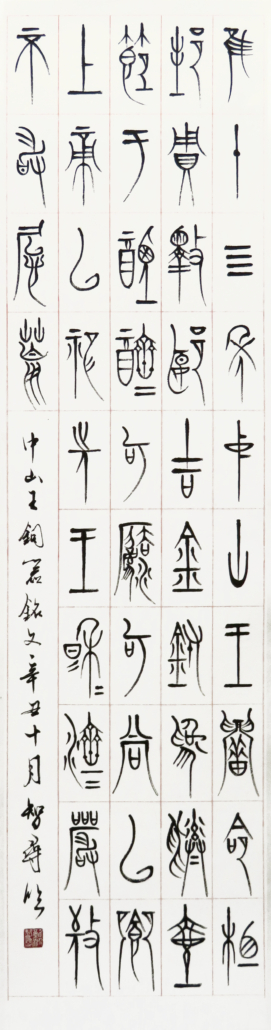 隹十四年中山王𰯼命相
邦賙擇郾吉金鑄為彝壺
節于禋齊可法可尚以饗
上帝以祀先王穆＝濟＝嚴敬
不敢怠荒
中山王銅器銘文辛丑十月智尋臨